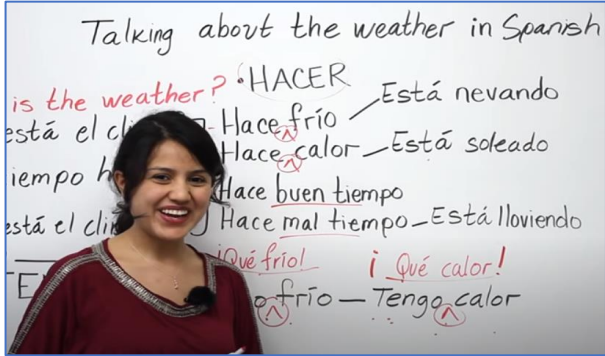 Talking about the weather in Spanish
is the weather? • HACER
está el Hace frío Está nevando
Hace calor – Está soleado
iempo Hace buen tiempo
está el Hace mal tiempo – Está lloviendo
¡Qué frío! ¡Qué calor!
frío – Tengo calor